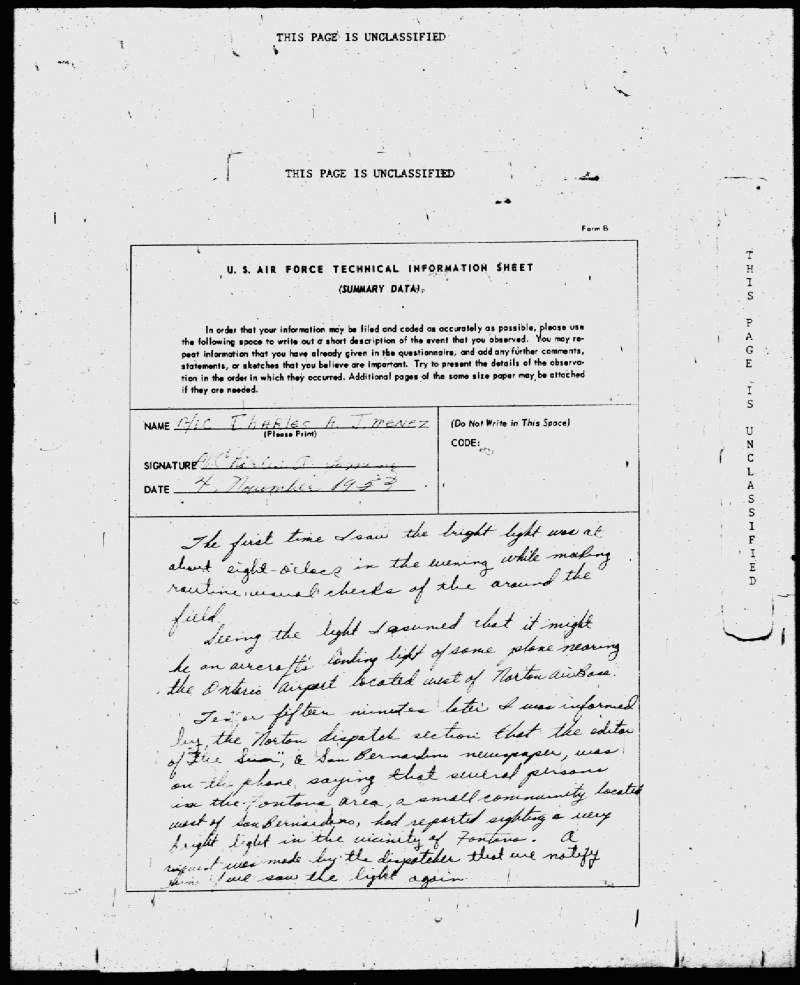 THIS PAGE IS UNCLASSIFIED
THIS PAGE IS UNCLASSIFIED
Form B
U. S. AIR FORCE TECHNICAL INFORMATION SHEET
(SUMMARY DATA)
In order that your information may be filed and coded as accurately as possible, please use
the following space to write out a short description of the event that you observed. You may re-
peat information that you have already given in the questionnaire, and add any further comments,
statements, or sketches that you believe are important. Try to present the details of the observa-
tion in the order in which they occurred. Additional pages of the same size paper may be attached
if they are needed.
NAME A/1C CHARLES A. JIMENEZ
(Please Print)
SIGNATURE
DATE 4 November 1953
(Do Not Write in This Space)
CODE:
The first time I saw the bright light was at
about eight-oclock in the evening while making
routine visual checks of the around the
field.
Seeing the light I assumed that it might
be an aircrafts landing light of some plane nearing
the Ontario Airport located west of Norton Air Base.
Ten or fifteen minutes later I was informed
by the Norton dispatch section that the editor
of "The Sun", a San Bernardino newspaper, was
on the phone, saying that several persons
in the Fontana area, a small community located
west of San Bernardino, had reported sighting a very
bright light in the vicinity of Fontana. A
request was made by the dispatcher that we notify
him if we saw the light again.
THIS PAGE IS UNCLASSIFIED